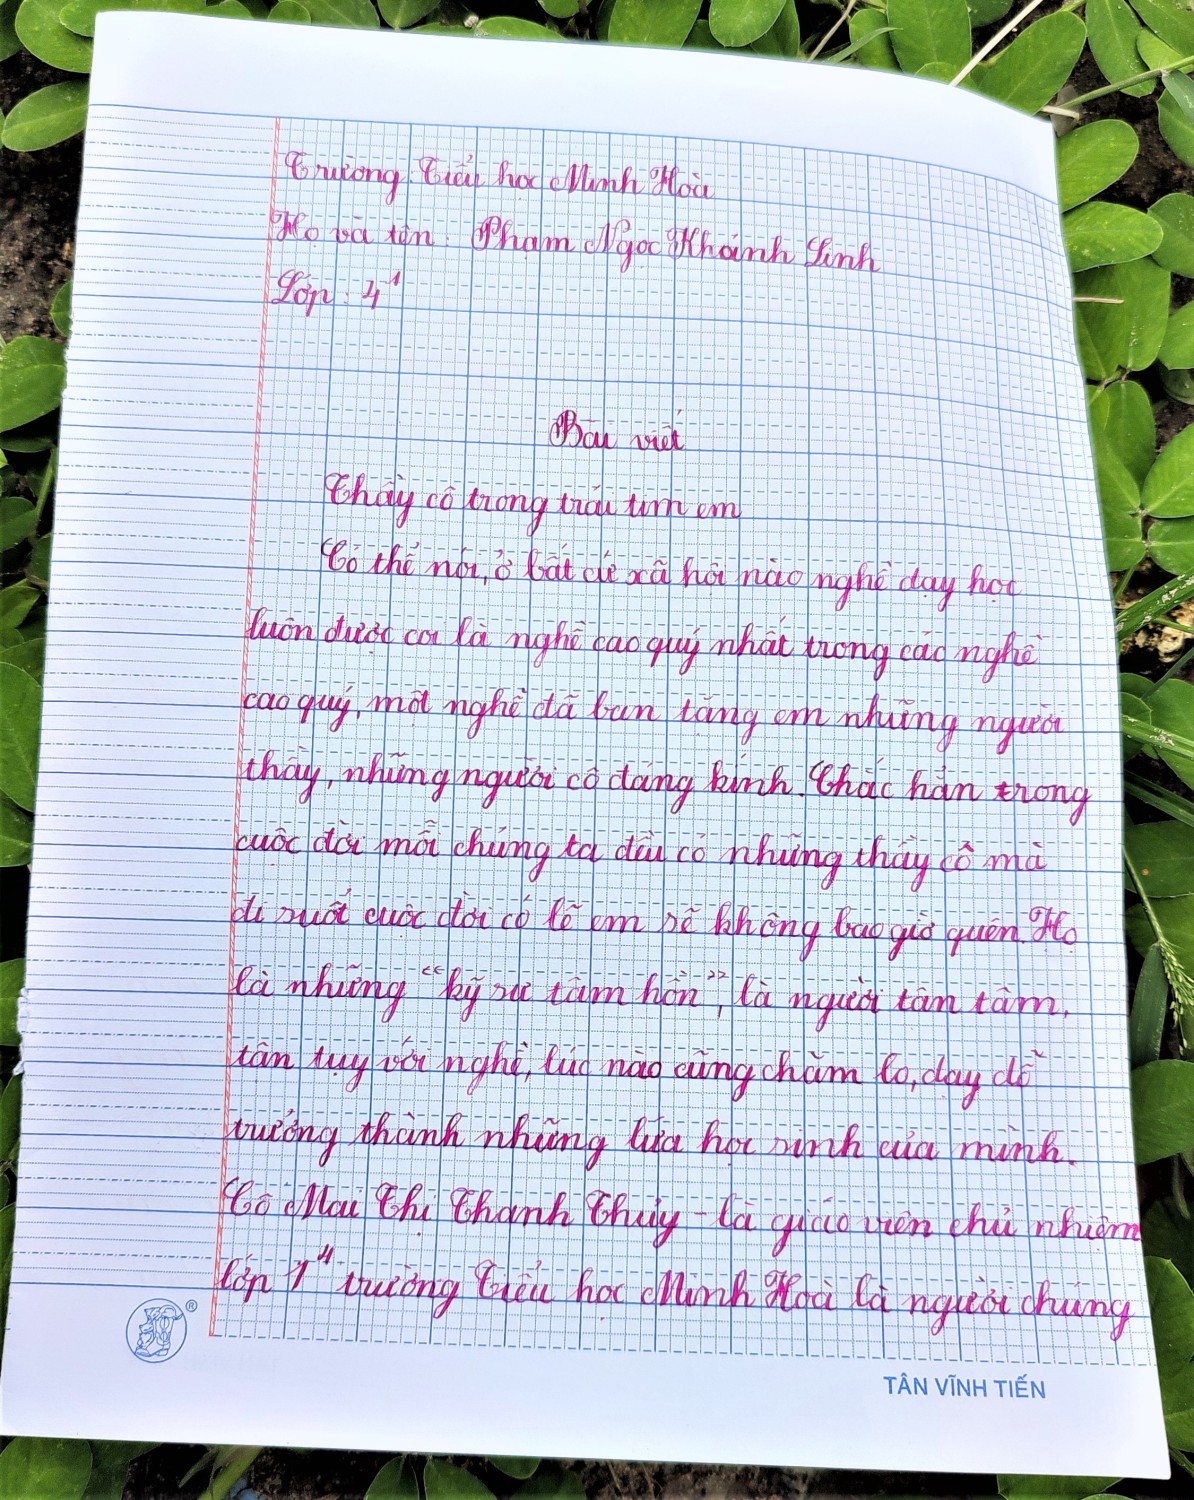 Trường Tiểu học Minh Hoà
Họ và tên: Phạm Ngọc Khánh Linh
Lớp: 4¹
Bài viết
Thầy cô trong trái tim em
Có thể nói, ở bất cứ xã hội nào nghề dạy học
luôn được coi là nghề cao quý nhất trong các nghề
cao quý, một nghề đã ban tặng em những người
thầy, những người cô đáng kính. Chắc hẳn trong
cuộc đời mỗi chúng ta đều có những thầy cô mà
đi suốt cuộc đời có lẽ em sẽ không bao giờ quên. Họ
là những “kỹ sư tâm hồn”, là người tận tâm,
tận tụy với nghề, lúc nào cũng chăm lo, dạy dỗ
trưởng thành những lứa học sinh của mình.
Cô Mai Thị Thanh Thủy - là giáo viên chủ nhiệm
lớp 1⁴ trường Tiểu học Minh Hoà là người chúng
®
TÂN VĨNH TIẾN